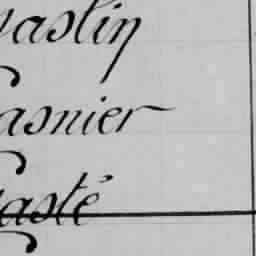 astin
asnier
asté